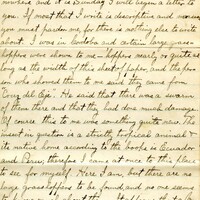 nowhere and it is Sunday I will begin a letter to
you. If most that I write is descriptive and
you must pardon me, for there is nothing else to write
about. I was in Cordoba and certain large grass-
hoppers were shown to me - hopper nearly, or quite as
long as the width of this sheet of paper, and the per-
son who showed them to me said they came from
"Cruz del Eje". He said that there was a swarm
of them there and that they had done much damage.
Of course this to me was something quite new. The
insect in question is a strictly tropical animal &
its native home according to the books is Ecuador
and Peru; therefore I came at once to this place
to see for myself. Here I am, but there are no
large grasshoppers to be found, and no one seems